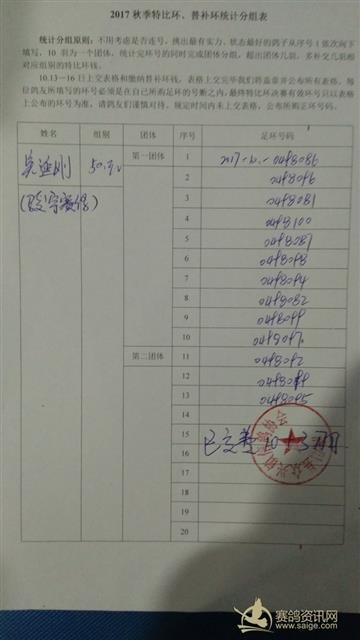 2017 秋季特比环、普补环统计分组表
统计分组原则：不用考虑是否连号，挑出最有实力、状态最好的鸽子从序号 1 依次向下
填写，10 羽为一个团体，统计完环号的同时完成团体分组，超出团体几羽，多补交几羽相
对应组别的特比环钱。
10.13－16 日上交表格和缴纳普补环钱，表格上交完毕我们将盖章并公布所有表格，每
位鸽友所填写的环号必须是在自己所购足环的号断之内，最终特比环决赛有效环号只以表格
上公布的环号为准，请鸽友们谨慎对待。规定时间内未上交表格，公布所购正环号码。
姓名 组别 团体 序号 足环号码
第一团体 1
2 0498096
3 0498081
4 0498100
5 0498087
6 0498098
7 0498094
8 0498082
9 0498099
10
第二团体 11 0498092
12
13 0498095
14
15
16
17
18
19
20
赛鸽资讯网
www.saige.com